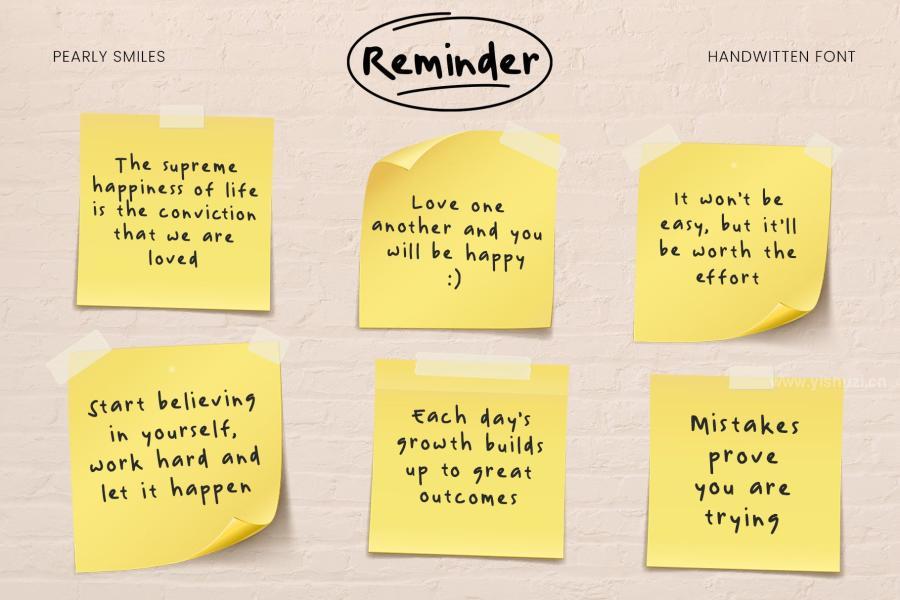 PEARLY SMILES
Reminder
HANDWITTEN FONT
The supreme
happiness of life
is the conviction
that we are
loved
Love one
another and you
will be happy
:)
It won't be
easy, but it'll
be worth the
effort
Start believing
in yourself,
work hard and
let it happen
Each day's
growth builds
up to great
outcomes
www.yishuzi.cn
Mistakes
prove
you are
trying